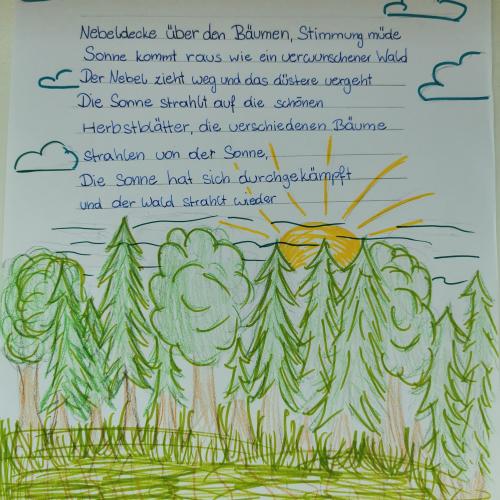 Nebeldecke über den Bäumen, Stimmung müde
Sonne kommt raus wie ein verwunschener Wald
Der Nebel zieht weg und das düstere vergeht
Die Sonne strahlt auf die schönen
Herbstblätter, die verschiedenen Bäume
strahlen von der Sonne,
Die Sonne hat sich durchgekämpft
und der Wald strahlt wieder